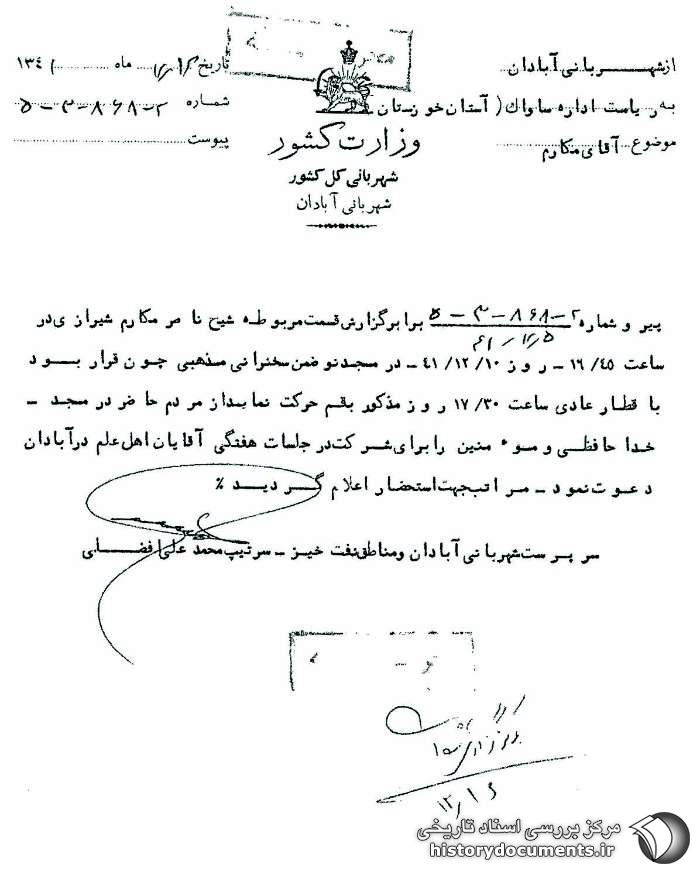 از شهربانی آبادان
به ریاست اداره ساواک (آستان خوزستان
موضوع آقای مکارم
وزارت کشور
شهربانی کل کشور
شهربانی آبادان
تاریخ ماه ۱۳٤۱
شماره ۲-۸۶۸-۳-۵
پیوست
پیر و شماره ۲-۸۶۸-۳-۵ برابر گزارش قسمت مربوطه شیخ نا صر مکارم شیرازی در
۴۱/۱۲/۵
ساعت ۱۶/٤۵ - روز ۴۱/۱۲/۱۰ - در مسجد نو ضمن سخنرانی مذهبی چون قرار بود
با قطار عادی ساعت ۱۷/۳۰ روز مذکور بقم حرکت نماید از مردم حاضر در مسجد -
خدا حافظی و موء منین را برای شرکت در جلسات هفتگی آقایان اهل علم در آبادان
دعوت نمود - مراتب جهت استحضار اعلام گردید %
سرپرست شهربانی آبادان و مناطق نفت خیز - سرتیپ محمد علی افضلی
۱۲/۱۶
مرکز بررسی اسناد تاریخی
historydocuments.ir